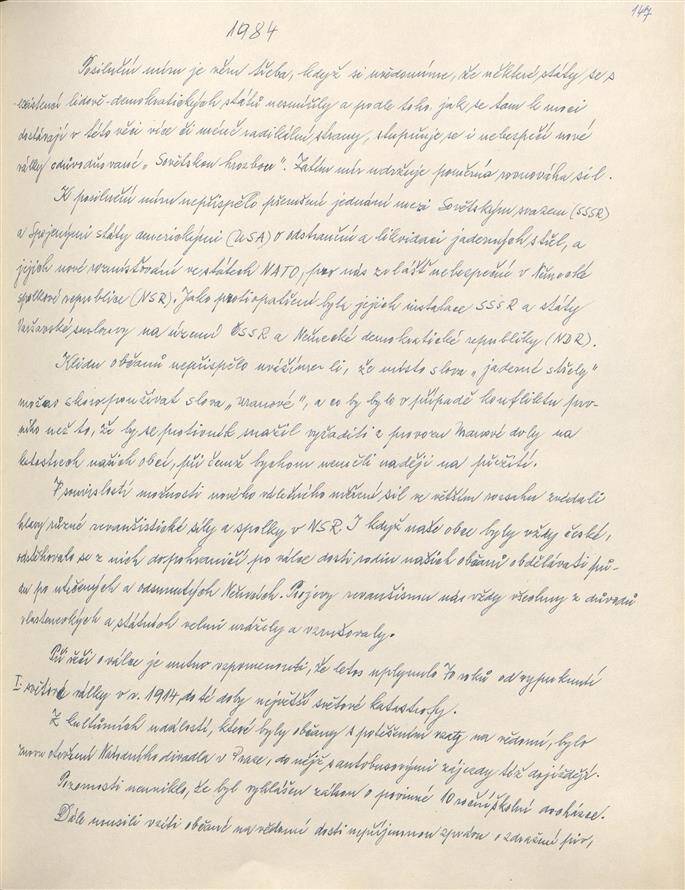 147
1984
Posilnění míru je všem třeba, když si uvědomíme, že některé státy se s
existencí lidově-demokratických států nesmířily a podle toho, jak se tam k moci
dostávají v této věci více či méně radikální strany, stupňuje se i nebezpečí nové
války odůvodňované „Sovětskou hrozbou". Zatím mír udržuje poměrná rovnováha sil.
K posilnění míru nepřispělo přerušení jednání mezi Sovětským svazem (SSSR)
a Spojenými státy americkými (USA) o odstranění a likvidaci jaderných střel, a
jejich nové rozmisťování ve státech NATO, pro nás zvlášť nebezpečné v Německé
spolkové republice (NSR). Jako protiopatření byla jejich instalace SSSR a státy
Varšavské smlouvy na území ČSSR a Německé demokratické republiky (NDR).
Klidu občanů nepřispělo uvážíme-li, že místo slova „jaderné střely"
možno skoro používat slova „uranové", a co by bylo v případě konfliktu prv-
ního než to, že by se protivník snažil vyřaditi z provozu Uranové doly na
katastrech našich obcí, při čemž bychom neměli naději na přežití.
V souvislosti možnosti nového měření sil ve větším rozsahu zvedali
hlavy různé revanšistické síly a spolky v NSR. I když naše obce byly vždy české,
odstěhovalo se z nich do pohraničí po válce dosti rodin našich občanů obdělávati pů-
du po utečených a odsunutých Němcích. Projevy revanšismu nás vždy všechny z důvodů
vlasteneckých a státních velmi urážely a vzrušovaly.
Při řeči o válce je nutno vzpomenouti, že letos uplynulo 70 roků od vypuknutí
I. světové války v r. 1914, do té doby největší světové katastrofy.
Z kulturních událostí, které byly občany s potěšením vzaty na vědomí, bylo
znovu otevření Národního divadla v Praze, do nějž s autobusovými zájezdy též dojíždějí.
Pozornosti neuniklo, že byl vyhlášen zákon o povinné 10 roční školní docházce.
Dále musili vzíti občané na vědomí dosti nepříjemnou zprávu o zdražení piv,